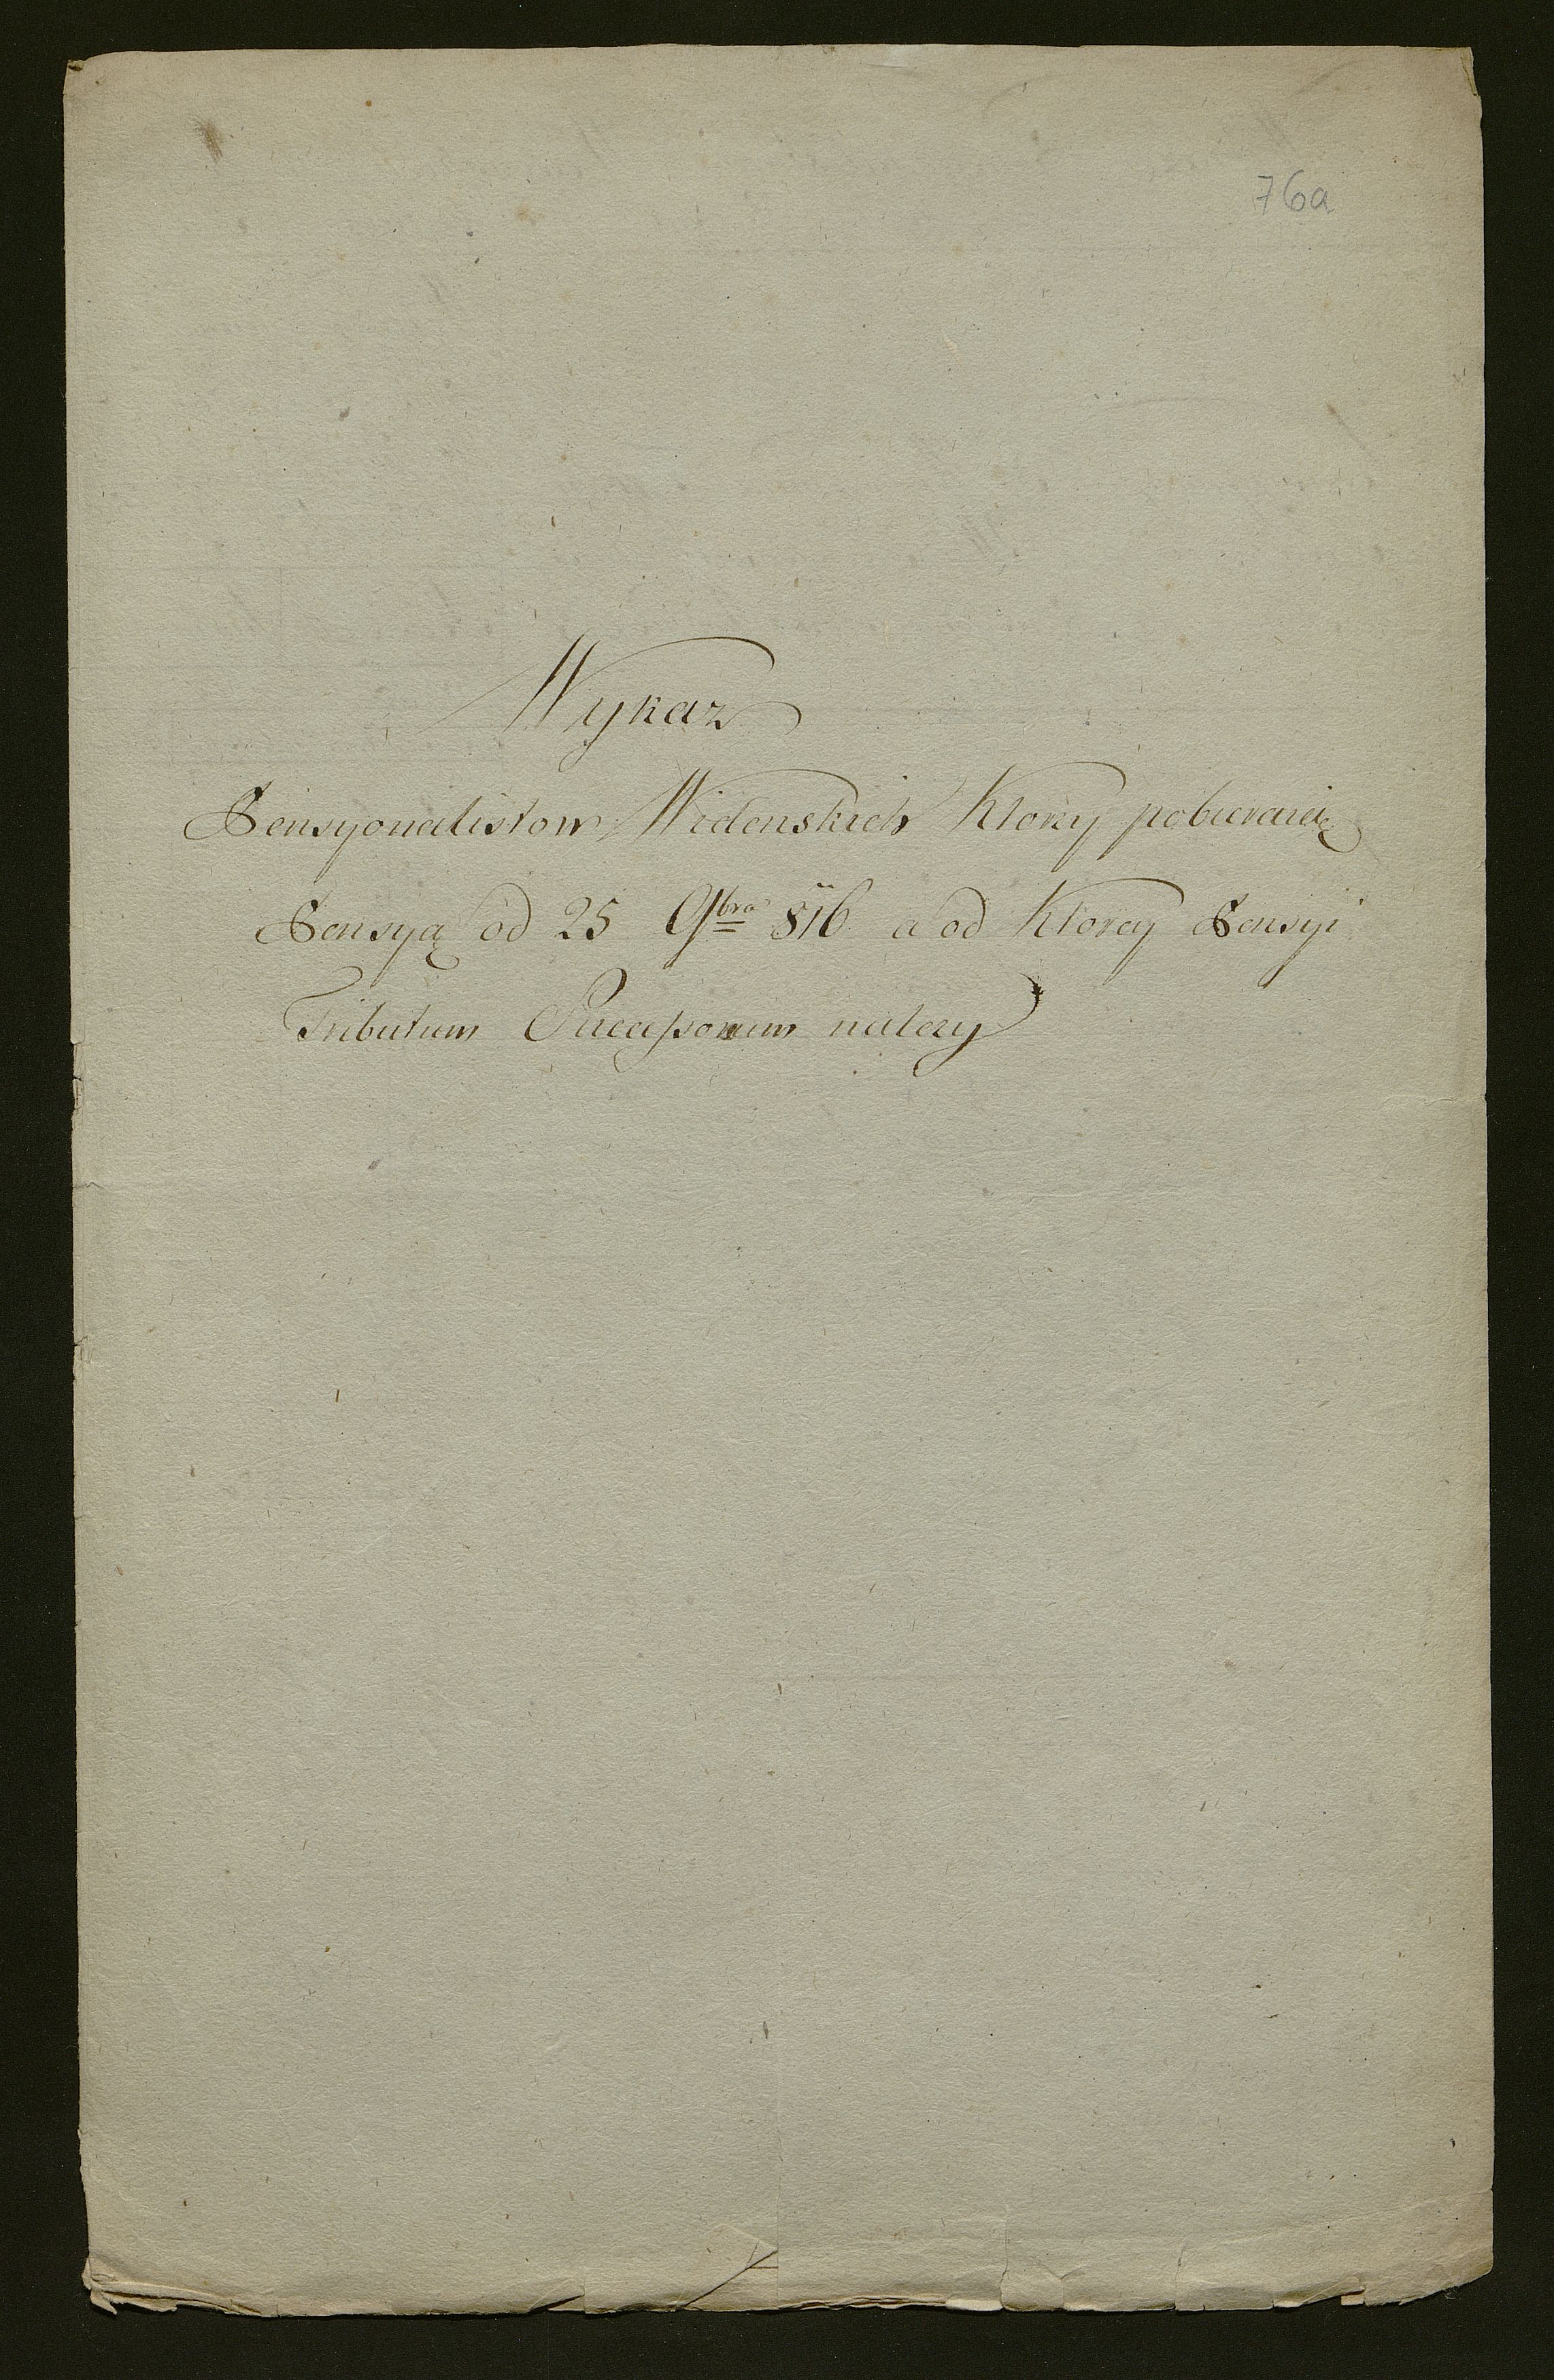 76a
Wykaz
Pensyonalistow Widenskich Ktorzy pobieraią
Pensyą od 25 9bra 816 a od Ktorey Pensyi
Tributum należy